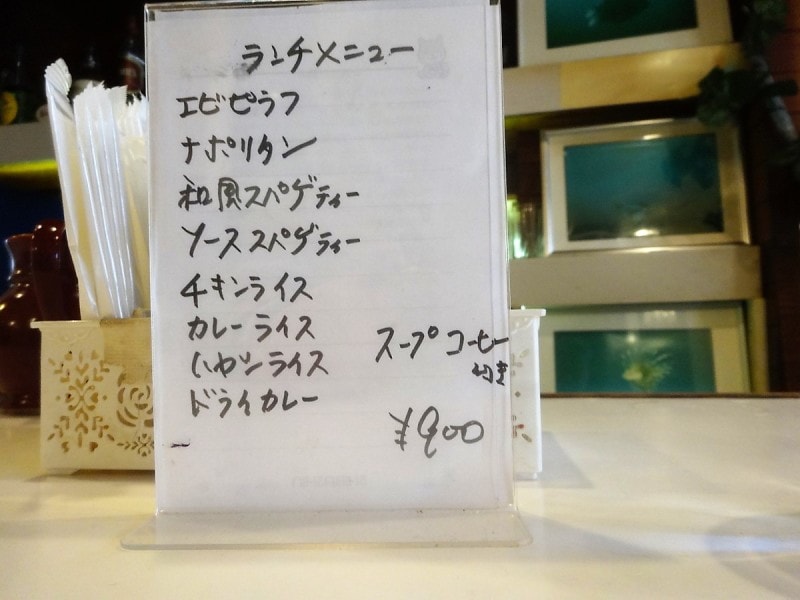 ランチメニュー
エビピラフ
ナポリタン
和風スパゲティー
ソーススパゲティー
チキンライス
カレーライス
ハヤシライス
ドライカレー
スープコーヒー
付き
¥900